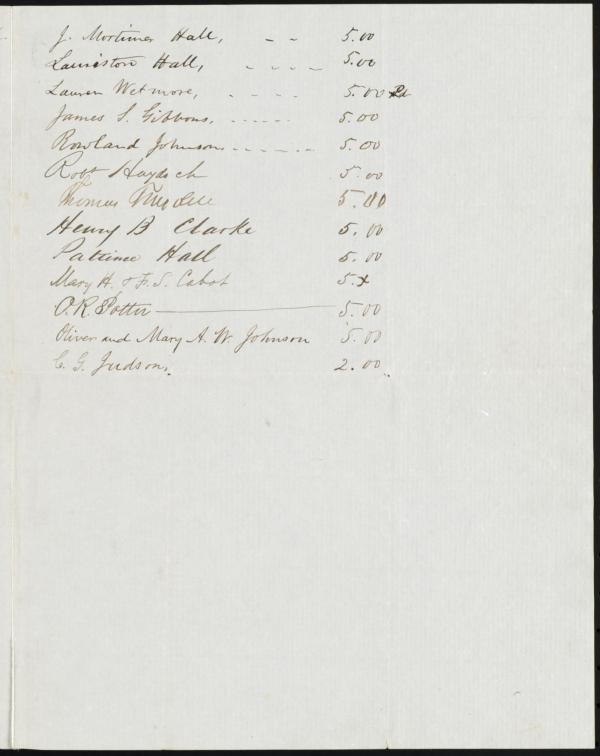 J. Mortimer Hall, - - 5.00
Lauriston Hall, - - - - 5.00
Lauren Wetmore, - - - - 5.00 Pd
James S. Gibbons. - - - - - 5.00
Rowland Johnson - - - - - - 5.00
Robt Haydock 5.00
Thomas 5.00
Henry B Clarke 5.00
Patience Hall 5.00
Mary H. & F. S. Cabot 5.x
O. R. Potter 5.00
Oliver and Mary A. W. Johnson 5.00
C. G. Judson. 2.00